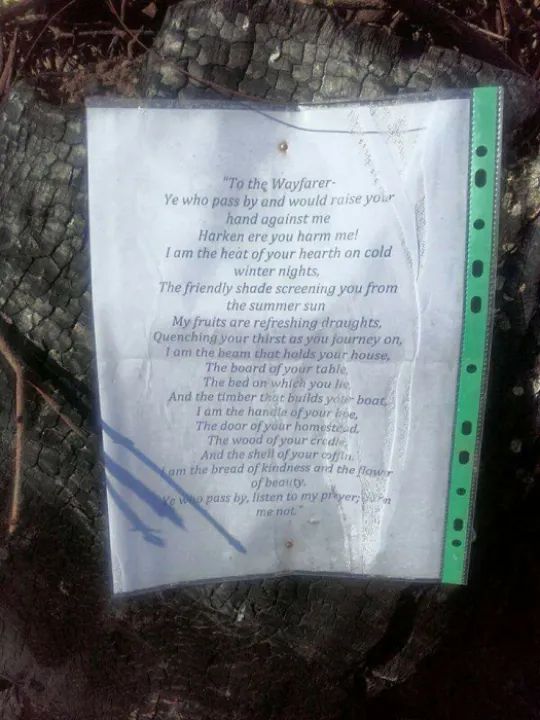 "To the Wayfarer-
Ye who pass by and would raise your
hand against me
Harken ere you harm me!
I am the heat of your hearth on cold
winter nights,
The friendly shade screening you from
the summer sun
My fruits are refreshing draughts,
Quenching your thirst as you journey on,
I am the beam that holds your house,
The board of your table,
The bed on which you lie,
And the timber that builds your boat,
I am the handle of your hoe,
The door of your homestead,
The wood of your cradle,
And the shell of your coffin.
I am the bread of kindness and the flower
of beauty.
Ye who pass by, listen to my prayer; harm
me not."